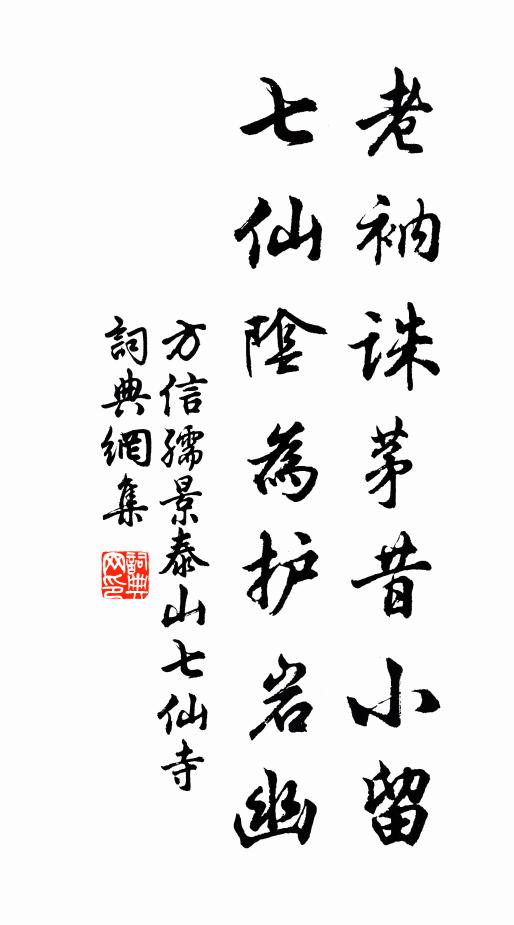 老衲誅茅昔小留
七仙陰為护岩幽
方信孺景泰山七仙寺
詞典網集
詞典网印